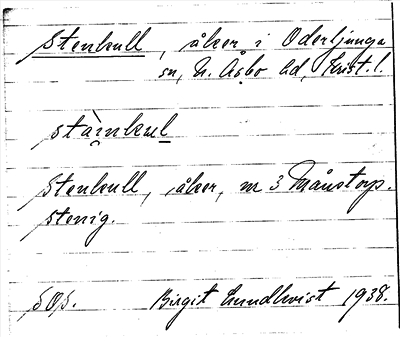 Stenkull, åker i Oderljunga
sn, N. Åsbo hd, Krist. l.
stàinkul
Stenkull, åker, m 3 Månstorp.
stenig.
SOS. Birgit Lundkvist 1938.